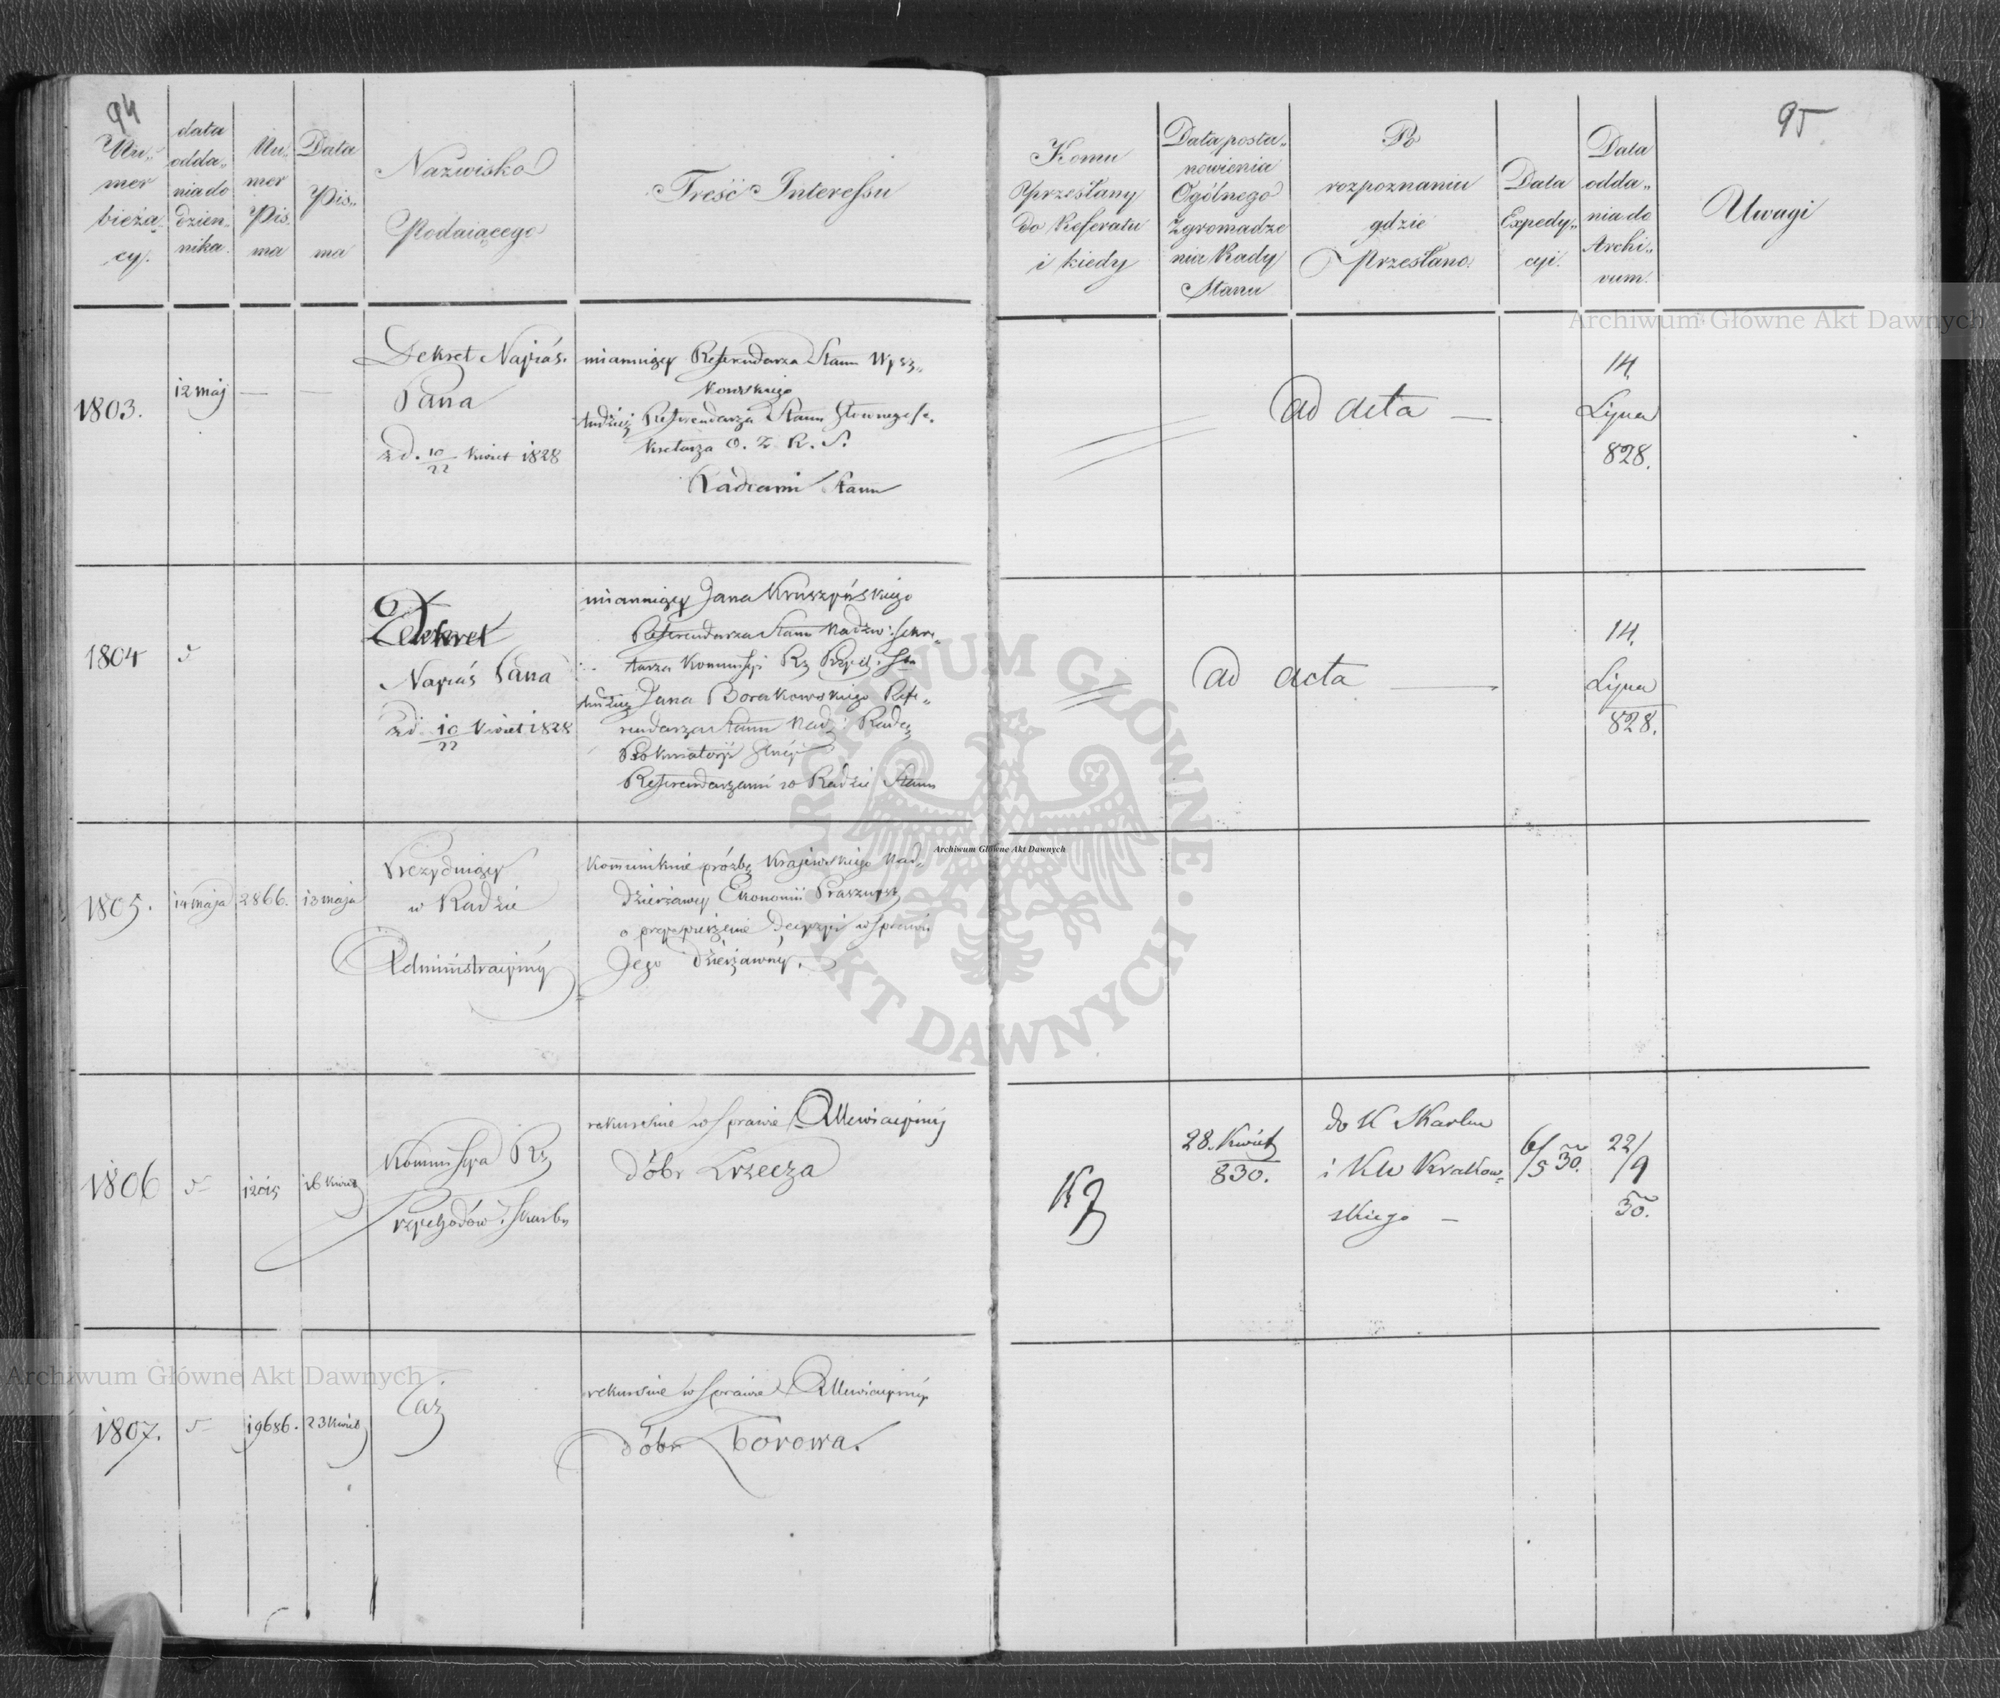 94
Nu-
mer
bieżą-
cy.
data
odda-
nia do
dzien-
nika.
Nu-
mer
Pis-
ma
Data
Pis-
ma
Nazwisko
Podaiącego
Treść Interessu
1803.
12 maj
—
—
Dekret Najiaś.
Pana
z d. 10/22 kwiet 1828
mianuiący Referendarza Stanu Wysz-
kowskiego
tudzież Referendarza Stanu Głownego Se-
kretarza O. Z. R. S.
Radcami Stanu
1804
Dekret
Najiaś Pana
z d. 10/22 kwiet 1828
mianuiący Jana Kruszyńskiego
Referendarza Stanu Nadzw: Sekre-
tarza Kommissyi Rz
tudzież Jana Borakowskiego Refe-
rendarza Stanu Nad: Radcę
Prokuratoryi
Referendarzami w Radzie Stanu
1805.
14 maja
2866.
13 maja
Prezyduiący
w Radzie
Administracyiney
kommunikuie prózbę Krajewskiego Nad-
dzierżawcy Ekonomii Prasznysz
o przyspieszenie decyzyi w sprawie
Jego dzierżawney.
1806
16 kwiet
Kommissya Rz
Przychodów i Skarbu
rekursuie w sprawie Allewiacyiney
dóbr Trzecza
1807.
19686.
23 kwiet
Taż
rekursuie w sprawie Allewiacyiney
dóbr Zborowa.
95
Komu
Przesłany
do Referatu
i kiedy
Data posta-
nowienia
Ogólnego
Zgromadze
nia Rady
Stanu
Po
rozpoznaniu
gdzie
Przesłano.
Data
Expedy-
cyi.
Data
odda-
nia do
Archi-
vum.
Uwagi
ad acta —
14.
Lipca
828.
ad acta —
14.
Lipca
828.
28. kwiet
830.
do K Skarbu
i KW Krakow-
skiego —
6/5 30.
22/9
30.
Archiwum Główne Akt Dawnych
Archiwum Główne Akt Dawnych
Archiwum Główne Akt Dawnych
ARCHIWUM GŁÓWNE AKT DAWNYCH